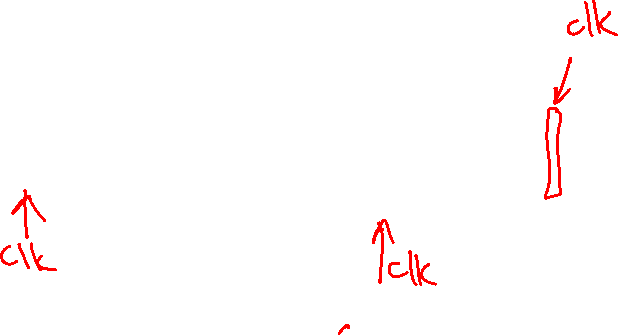 clk
clk
clk